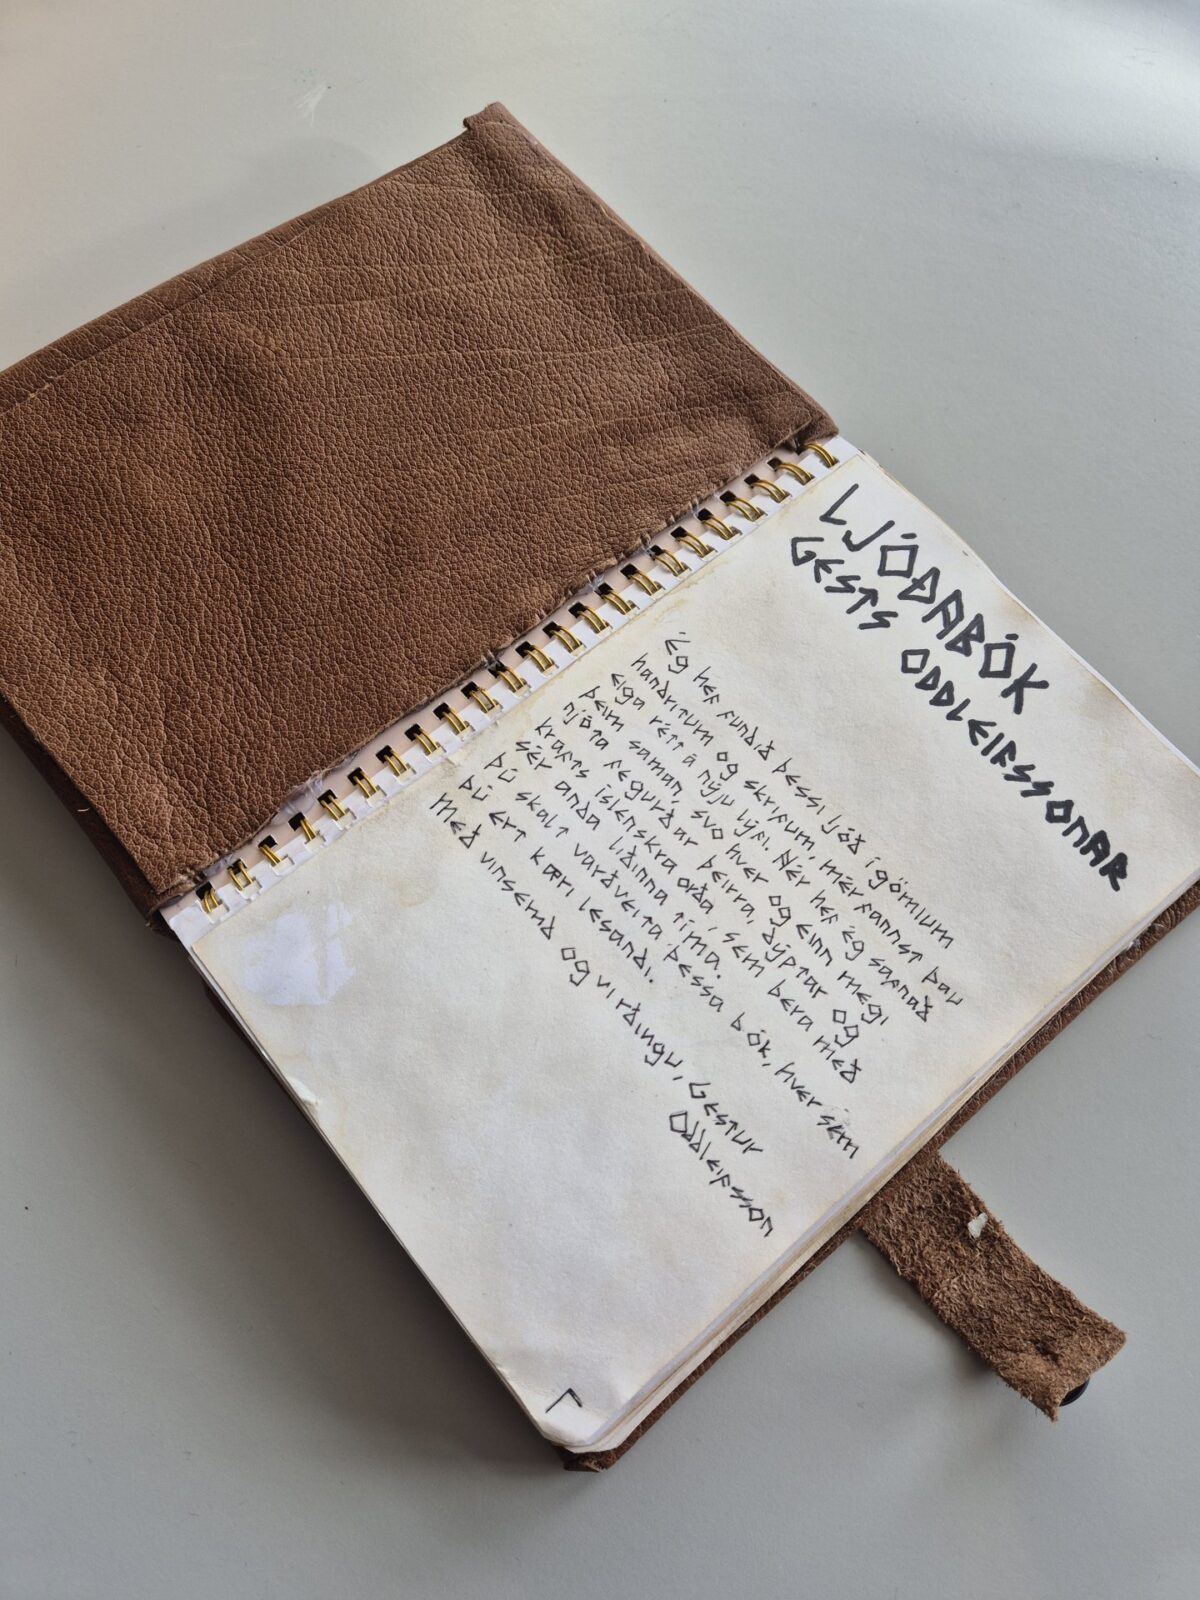 LJÓÐABÓK
GESTS ODDLEIFSSONAR
Ég hef fundið þessi ljóð í gömlum
handritum og skrifum, mér fannst þau
eiga rétt á nýju lífi. Hér hef ég safnað
þeim saman, svo hver og einn megi
njóta fegurðar þeirra, dýptar og
krafts íslenskra orða, sem bera með
sér anda liðinna tíma.
Þú skalt varðveita þessa bók, hver sem
þú ert kæri lesandi.
Með vinsemd og virðingu, Gestur
Oddleifsson